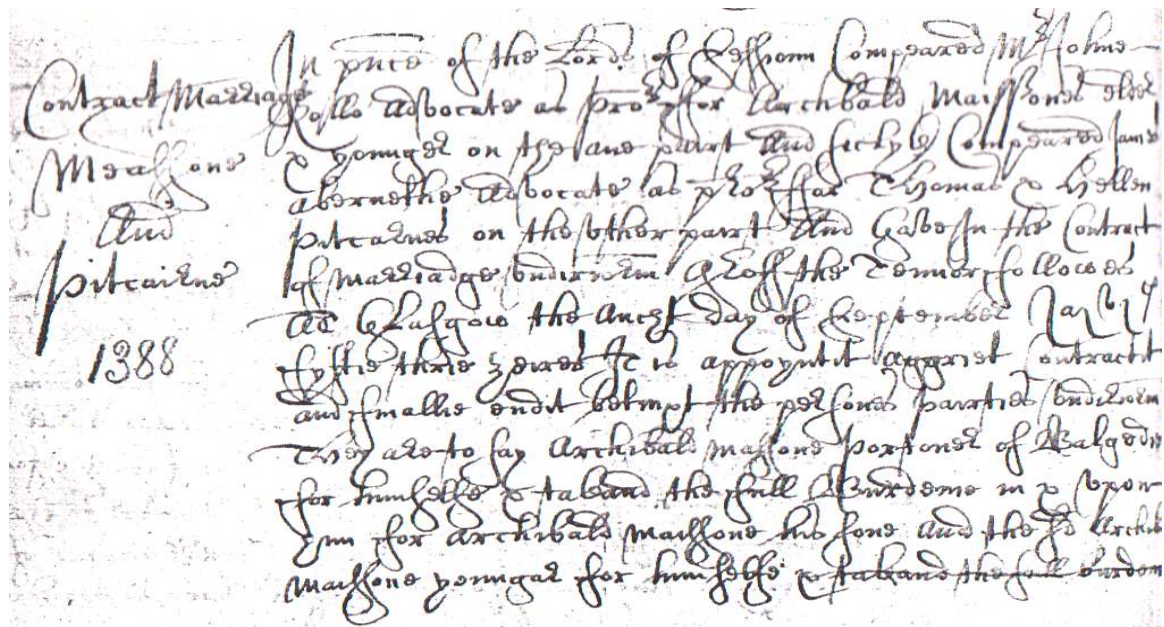 Contract Marriage
Meassone
And
Pitcairne
1388
In pnce of the Lords of Sessionn Compeared Mr Johne
Rollo Advocate as pror for Archbald Maissones elder
& younger on the ane pairt And siclyk Compeared James
abernethie Advocate as pror ffor Thomas & Hellen
Pitcairnes on the vther pairt And Gave In the Contract
of Marriadge vndirwrin Qroff the Tennor followes
At Glasgow the Aucht day of September Jaj vjc
fyftie thrie zeires It is appoyntit aggriet Contractit
and finallie endit betuixt the persones pairties vndirwrin
They are to say Archibald Massone portoner of Balgedie
for himselfe & takand the full Burdeine in & vpon
him for Archibald Maissone his sone And the sd Archibald
Maissone younger for himselfe & takand the full burdein